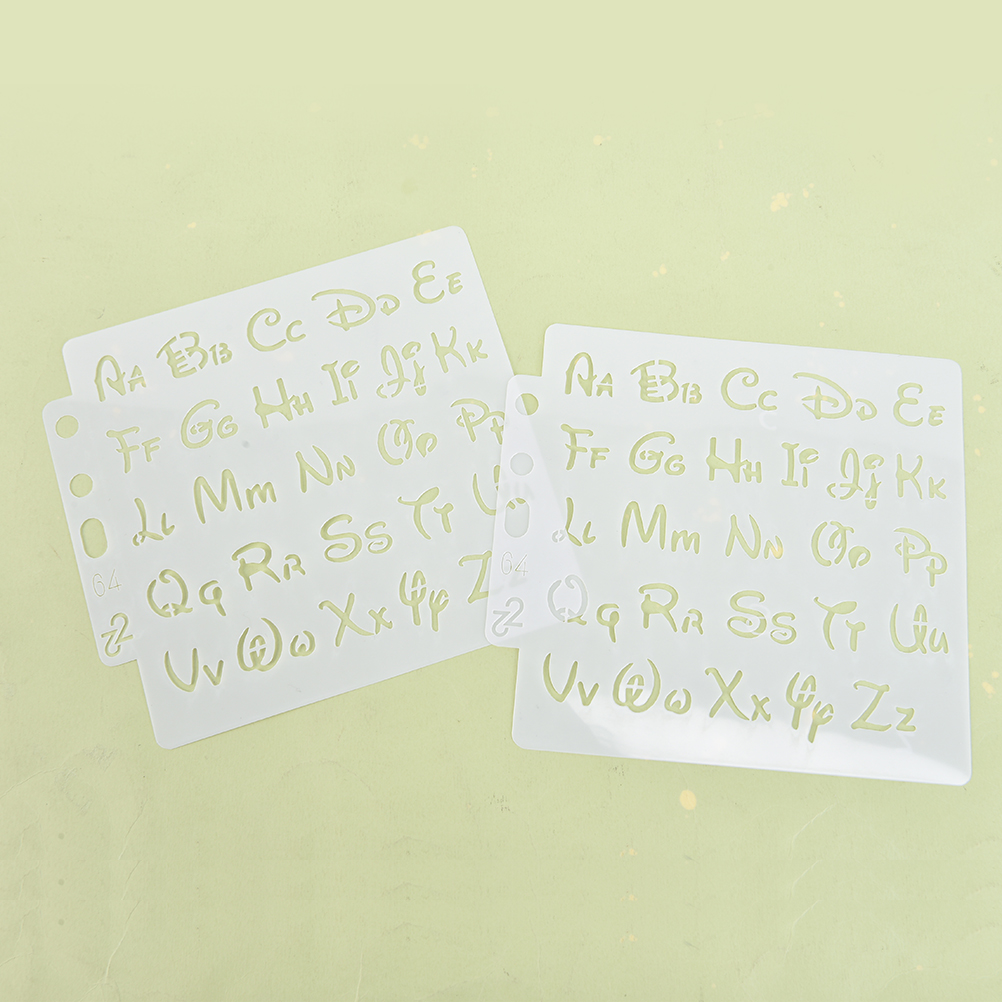 Aa Bb Cc Dd Ee
Ff Gg Hh Ii Jj Kk
Ll Mm Nn Oo Pp
Qq Rr Ss Tt U
Vv Ww Xx Yy Z
64
Aa Bb Cc Dd Ee
Ff Gg Hh Ii Jj Kk
Ll Mm Nn Oo Pp
Qq Rr Ss Tt Uu
Vv Ww Xx Yy Zz
64